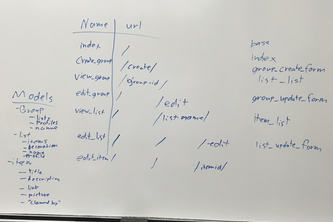 Name url
base
index / index
create_group /create/ group_create_form
view_group /group-id/ list_list
edit_group / /edit group_update_form
view_list / /list-name/ item_list
edit_list / / /edit list_update_form
edit_item / / /itemid/
Models
- Group
- lists
- profiles
- name
- list
- items
- name
- item
- title
- description
- link
- picture
- "claimed by"